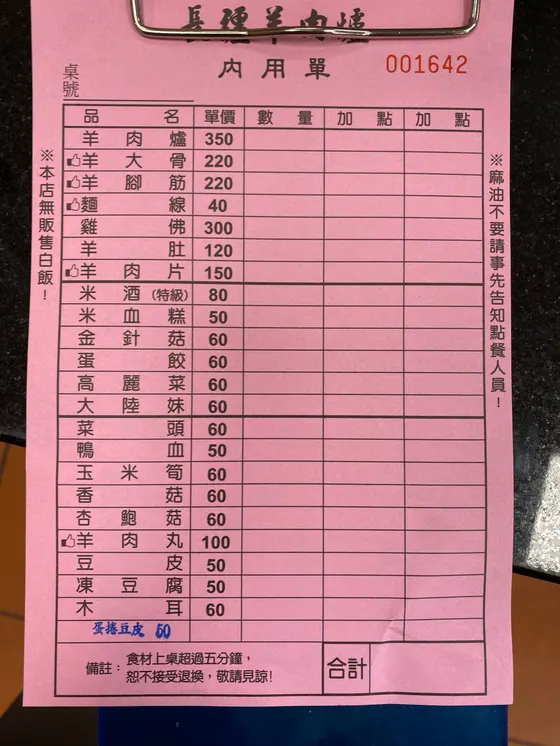 羊肉爐
內用單
001642
桌號
品名 單價 數量 加點 加點
羊肉爐 350
羊大骨 220
羊腳筋 220
麵線 40
雞佛 300
羊肚 120
羊肉片 150
米酒(特級) 80
米血糕 50
金針菇 60
蛋餃 60
高麗菜 60
大陸妹 60
菜頭 60
鴨血 50
玉米筍 60
香菇 60
杏鮑菇 60
羊肉丸 100
豆皮 50
凍豆腐 50
木耳 60
蛋捲豆皮 50
備註：食材上桌超過五分鐘，
恕不接受退換，敬請見諒!
合計
※本店無販售白飯！
※麻油不要請事先告知點餐人員！